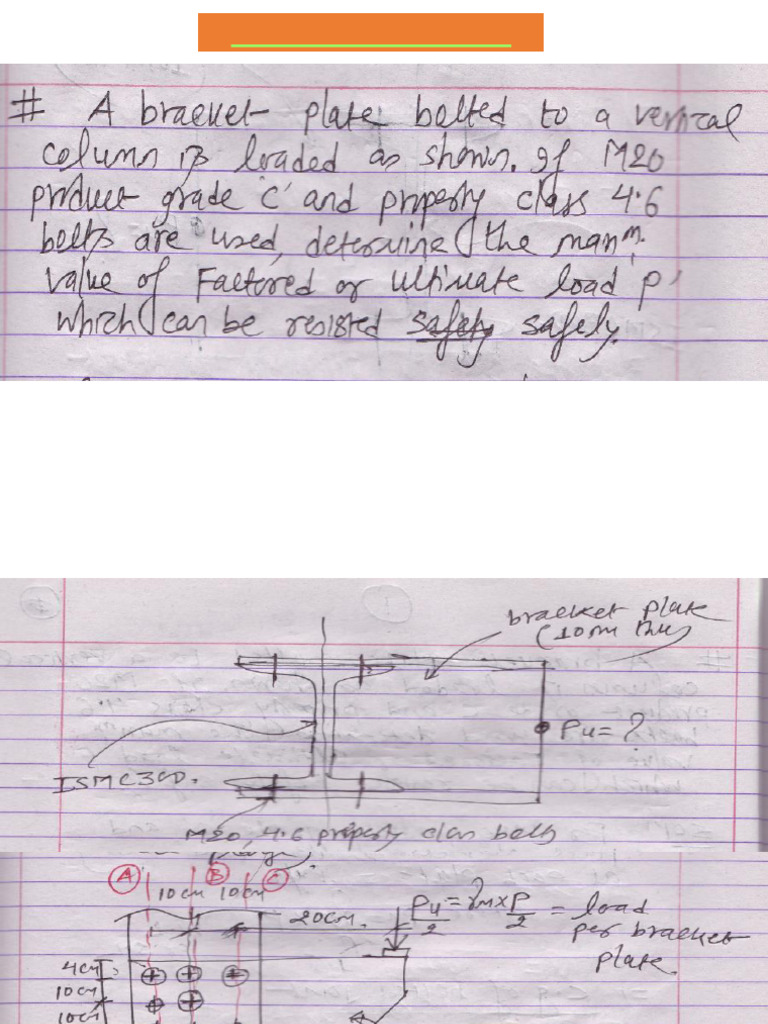 # A bracket plate bolted to a vertical
column is loaded as shown. If M20
product grade 'C' and property class 4.6
bolts are used, determine the maxm.
value of Factored or ultimate load 'P'
which can be resisted safety safely.
bracket plate
(10mm thk)
Pu = ?
ISMC300.
M20, 4.6 property class bolts
A B C
10cm 10cm
20cm.
Pu/2 = γm x P/2 = load
per bracket
plate.
4cm
10cm
10cm